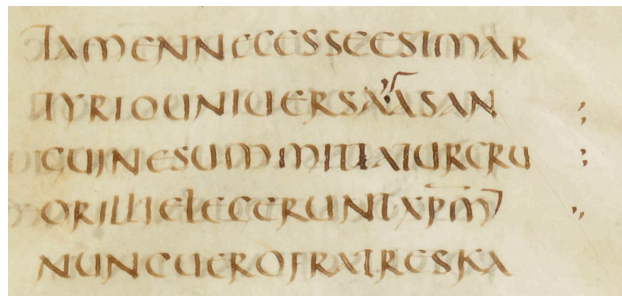 TAMENNECESSEESTMAR
TYRIOUNIUERSAASAN
GUINESUMMITTATURCRU
ORILLIELEGERUNTXPM
NUNCUEROFRATRESKA